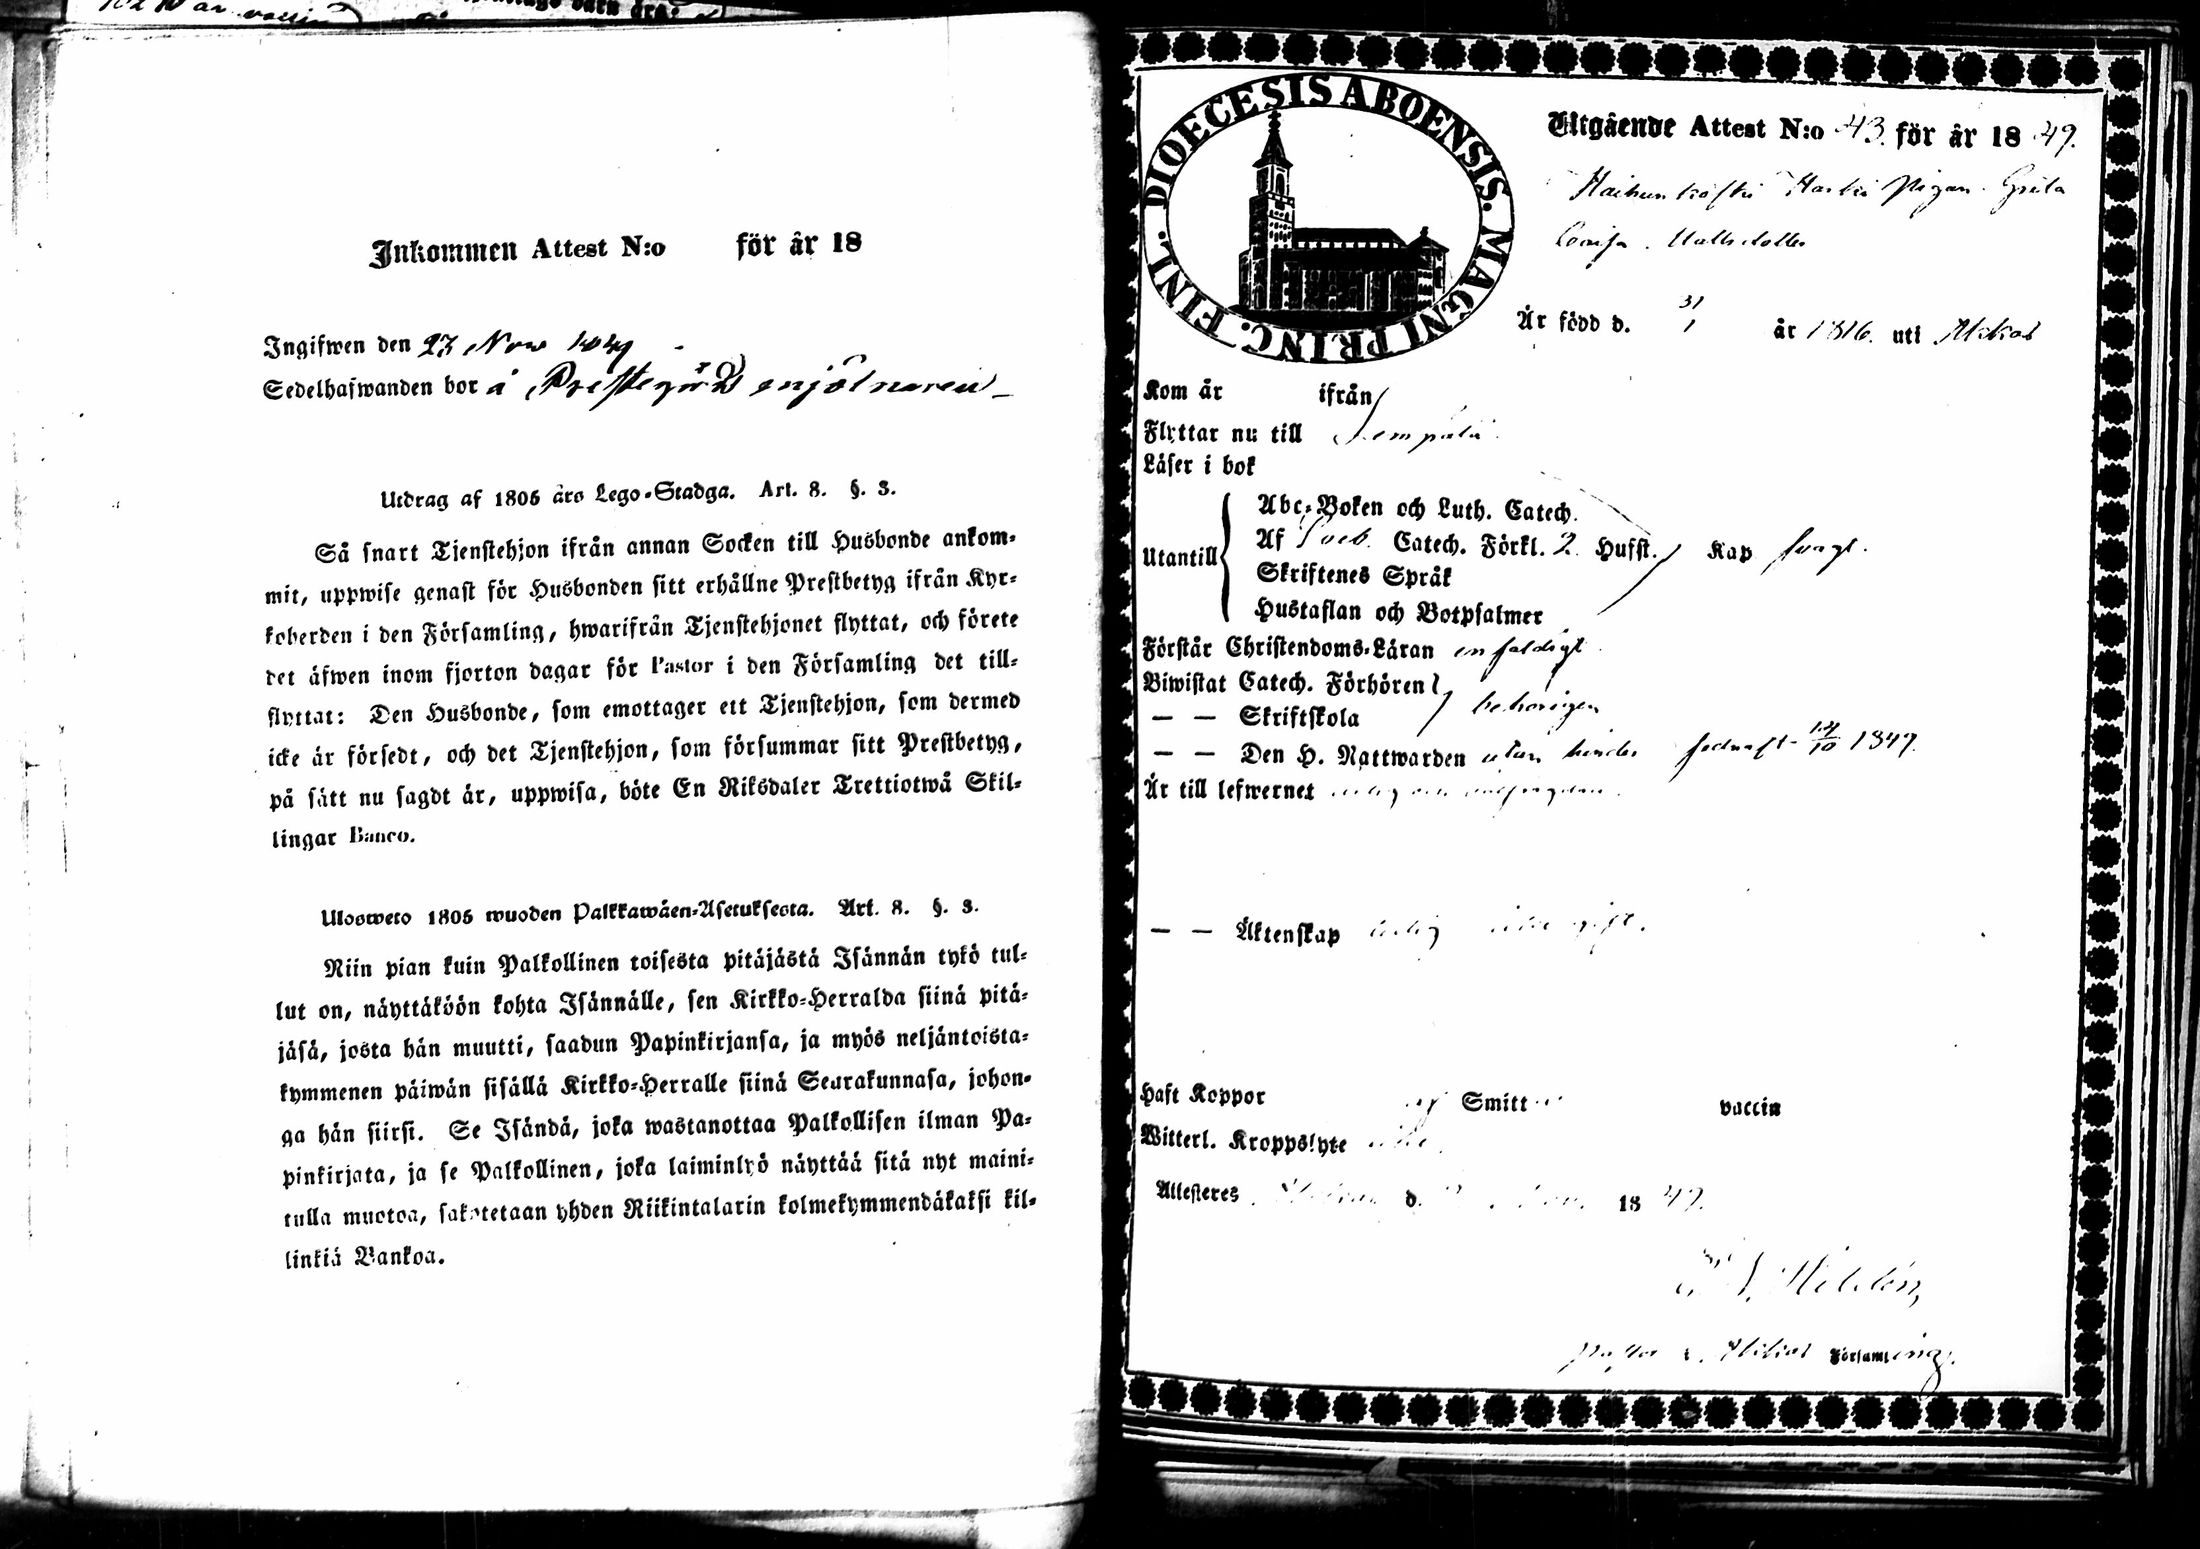 Inkommen Attest N:o för år 18
Ingifwen den 23 Nov 1849
Sedelhafwanden bor å Prestegårds mjölnaren
Utdrag af 1805 års Lego-Stadga. Art. 8. §. 3.
Så snart Tjenstehjon ifrån annan Socken till Husbonde ankom-
mit, uppwise genast för Husbonden sitt erhållne Prestbetyg ifrån Kyr-
koherden i den Församling, hwarifrån Tjenstehjonet flyttat, och förete
det äfwen inom fjorton dagar för Pastor i den Församling det till-
flyttat: Den Husbonde, som emottager ett Tjenstehjon, som dermed
icke är försedt, och det Tjenstehjon, som försummar sitt Prestbetyg,
på sätt nu sagdt är, uppwisa, böte En Riksdaler Trettiotwå Skil-
lingar Banco.
Ulosweto 1805 wuoden Palkkawäen-Asetuksesta. Art. 8. §. 3.
Niin pian kuin Palkollinen toisesta pitäjästä Isännän tykö tul-
lut on, näyttäköön kohta Isännälle, sen Kirkko-Herralda siinä pitä-
jäsä, josta hän muutti, saadun Papinkirjansa, ja myös neljäntoista-
kymmenen päiwän sisällä Kirkko-Herralle siinä Seurakunnasa, johon-
ga hän siirsi. Se Isändä, joka wastanottaa Palkollisen ilman Pa-
pinkirjata, ja se Palkollinen, joka laiminlyö näyttää sitä nyt maini-
tulla muotoa, sakotetaan yhden Riikintalarin kolmekymmendäkaksi kil-
linkiä Bankoa.
DIOECESIS ABOENSIS. MAGNI PRINC. FINL.
Utgående Attest N:o 43. för år 1849.
Pigan Greta
Lovisa Mattsdotter
Är född d. 31/1 år 1816. uti Akkas
Kom år ifrån
Flyttar nu till Lempälä
Läser i bok
Utantill
Abc-Boken och Luth. Catech.
Af Sveb. Catech. Förkl. 2. Hufst. Kap svagt.
Skriftenes Språk
Hustaflan och Botpsalmer
Förstår Christendoms-Läran enfaldigt
Biwistat Catech. Förhören
— — Skriftskola behörigen
— — Den H. Nattwarden utan hinder sednast 14/10 1849.
Är till lefwernet
— — Äktenskap ledig
Haft Koppor Smitt vaccin
Witterl. Kroppslyte
Attesteres d. 1849.
Hildén,
Församling.